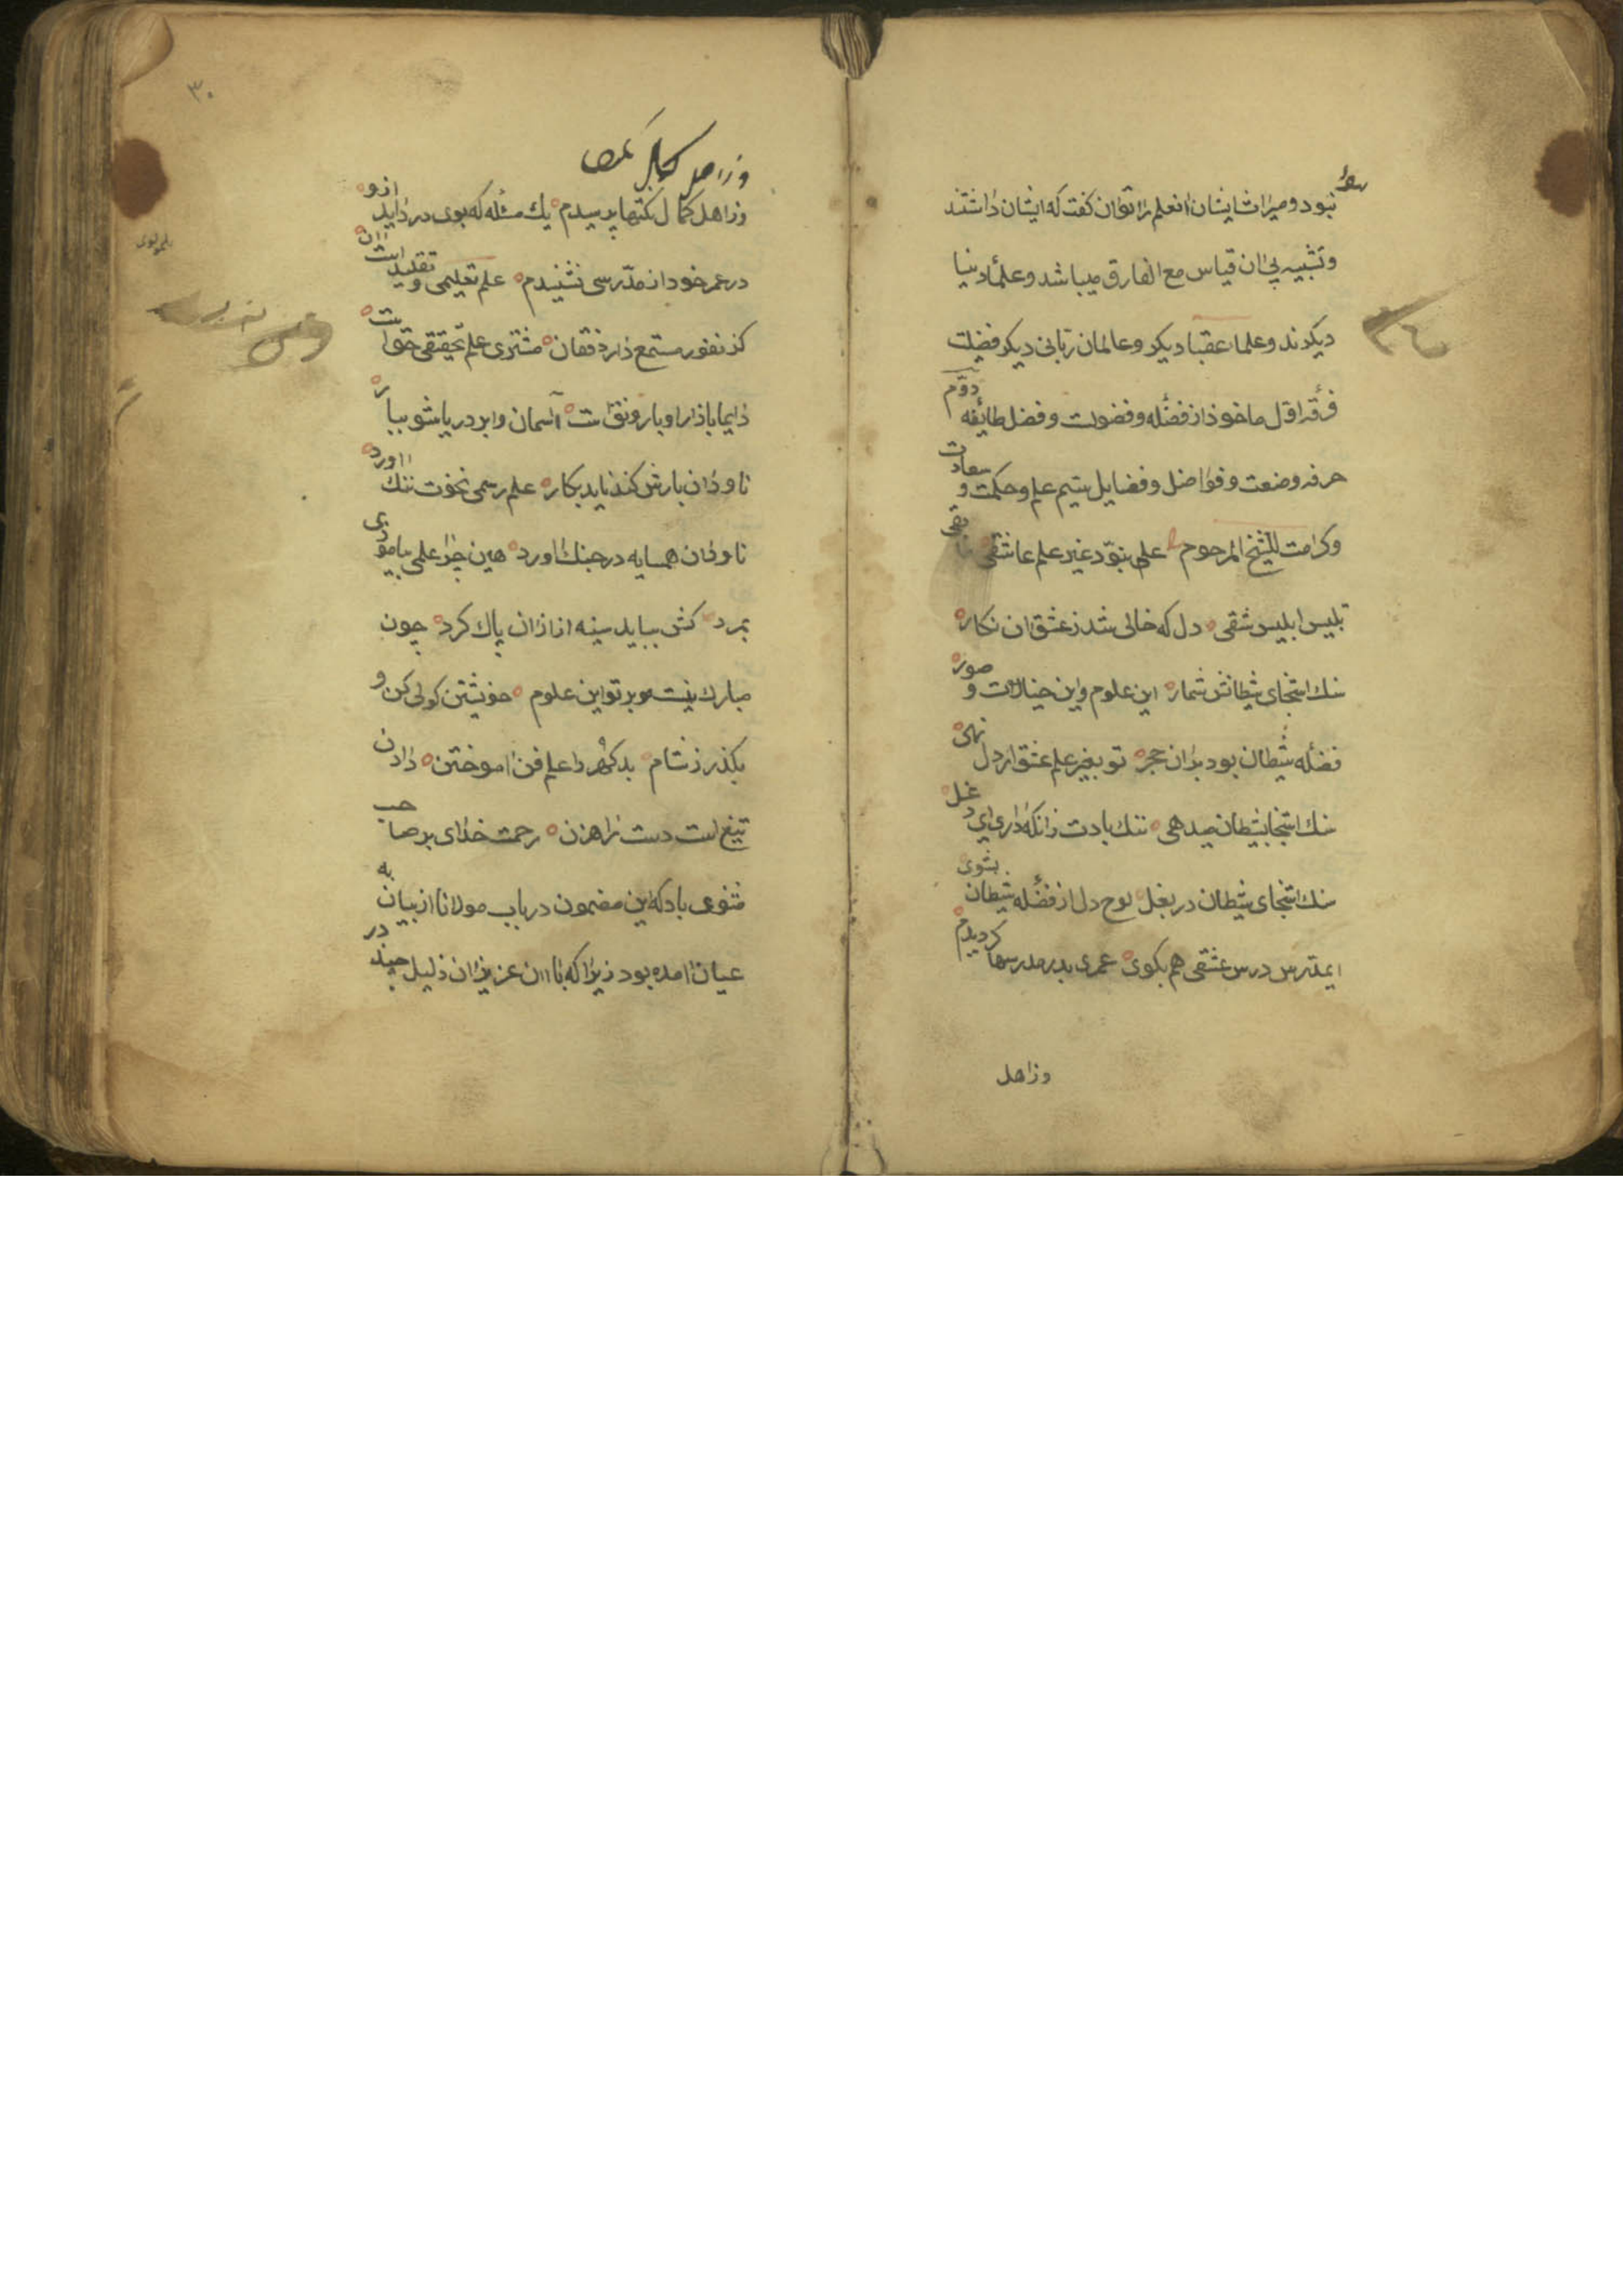 نبود و میراث ایشان انعلم را توان کفت که ایشان داشتند
وتشبیه بی ان قیاس مع الفارق میباشد وعلمأ دنیا
دیکرند وعلماء عقبا دیکر وعالمان ربانی دیکر فضیلت
فرقهٔ اوّل ماخوذ از فضٔله وفضولت وفضل طائفه دوّم
حرفه وضعت وفواضل وفضایل ستیم علم وحکمت و سعادت
وکرامت للشیخ المرحوم علم نبوّد غیر علم عاشقی ما بقی
تلبیس ابلیس شقی دل که خالی شد زعشق ان نکار
سنك استنجای شیطانش شمار این علوم واین خیالات و صور
فضٔله شیطان بود بران حجر تو بغیر علم عشق ار دل نهی
سنك استنجا بشیطان میدهی ننك بادت زانکه داری ای دغل
سنك استنجای شیطان در بغل لوح دل از فضٔله شیطان بشوی
ایمدّرس درس عشقی هم بکوی عمری بدر مدرسها کردیدم
وزاهل
۳۰
وزاهل کمال نکتها پرسیدم یك مسٔله که بوی درد اید ازو
درعمر خود از مدّرسی نشنیدم علم تعلیمی و تقلیدیست ان
کز نفور مستمع دارد فغان مشتری علم تحقیقی حق است
دایما بازار او با رونق است آسمان وابر دریا شو ببار
ناودان بارش کند ناید بکار علم رسمی نخوت ننك اورد
ناودان همسایه در جنك اورد هین چرا علمی بیاموزی
بمرد کش بباید سینه از ازان پاك کرد چون
مبارك نیست بر تو این علوم خویشتن کولی کن و
بکذر زشام بدکهر را علم فن اموختن دادن
تیغ است دست راهزن رحمت خدای بر صاحب
مثنوی باد که این مضمون در باب مولانا از بیان به
عیان امده بود زیرا که با ان عزیزان ذلیل چند در